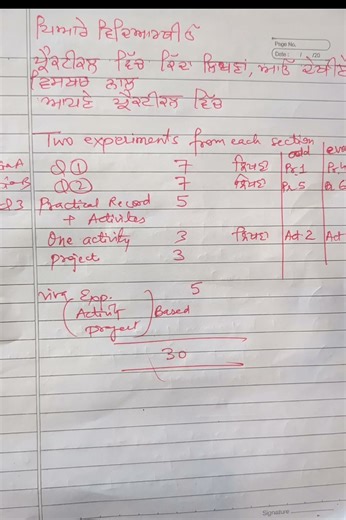 Page No.
Date : / /20
ਪਿਆਰੇ ਵਿਦਿਆਰਥੀਓ
ਪ੍ਰੈਕਟੀਕਲ ਵਿੱਚ ਕਿੱਦਾ ਲਿਖਣਾ, ਆਓ ਦੇਖੀਏ
ਵਿਸਥਾਰ ਨਾਲ
ਆਪਣੇ ਪ੍ਰੈਕਟੀਕਲ ਵਿੱਚ
Two experiments from each section
odd
Q ① 7 ਲਿਖਣਾ Pr. 1
Q ② 7 ਲਿਖਣਾ Pr. 5 Pr. 6
Practical Record 5
+ Activites
One activity 3 ਲਿਖਣਾ Act 2 Act
project 3
viva Exp. 5
(Activity) Based
project
30
Signature